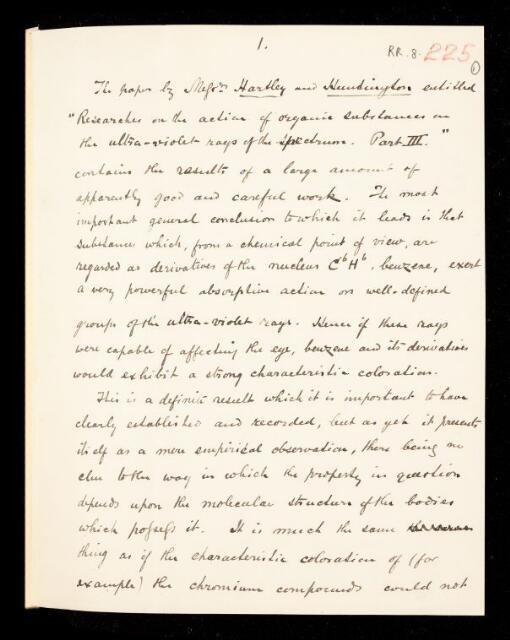 1.
RR. 8. 225
1
The paper by Messrs Hartley and Huntington entitled
"Researches on the action of organic substances on
the ultra-violet rays of the spectrum. Part III."
contains the results of a large amount of
apparently good and careful work. The most
important general conclusion to which it leads is that
substances which, from a chemical point of view, are
regarded as derivatives of the nucleus C⁶H⁶, benzene, exert
a very powerful absorptive action on well-defined
groups of the ultra-violet rays. Hence if these rays
were capable of affecting the eye, benzene and its derivatives
would exhibit a strong characteristic coloration.
This is a definite result which it is important to have
clearly established and recorded, but as yet it presents
itself as a mere empirical observation, there being no
clue to the way in which the property in question
depends upon the molecular structure of the bodies
which possess it. It is much the same
thing as if the characteristic coloration of (for
example) the chromium compounds could not